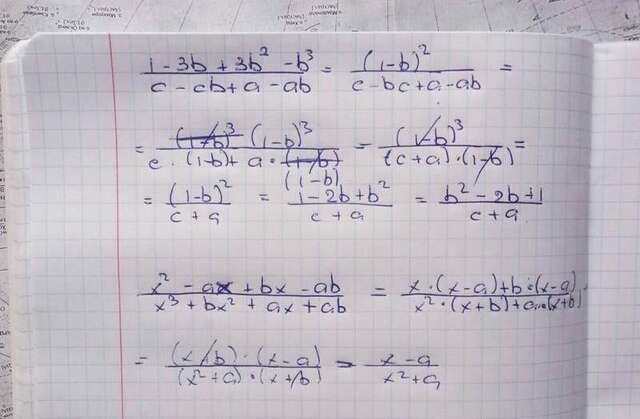 (1 - 3b + 3b² - b³)/(c - cb + a - ab) = (1-b)²/(c - bc + a - ab) =
= (1-b)³ (1-b)³/(c · (1-b) + a · (1-b) (1-b)) = (1-b)³/((c+a) · (1-b)) =
= (1-b)²/(c + a) = (1 - 2b + b²)/(c + a) = (b² - 2b + 1)/(c + a)
(x² - ax + bx - ab)/(x³ + bx² + ax + ab) = (x · (x-a) + b · (x-a))/(x² · (x+b) + a · (x+b))
= ((x+b) · (x-a))/((x² + a) · (x+b)) = (x - a)/(x² + a)